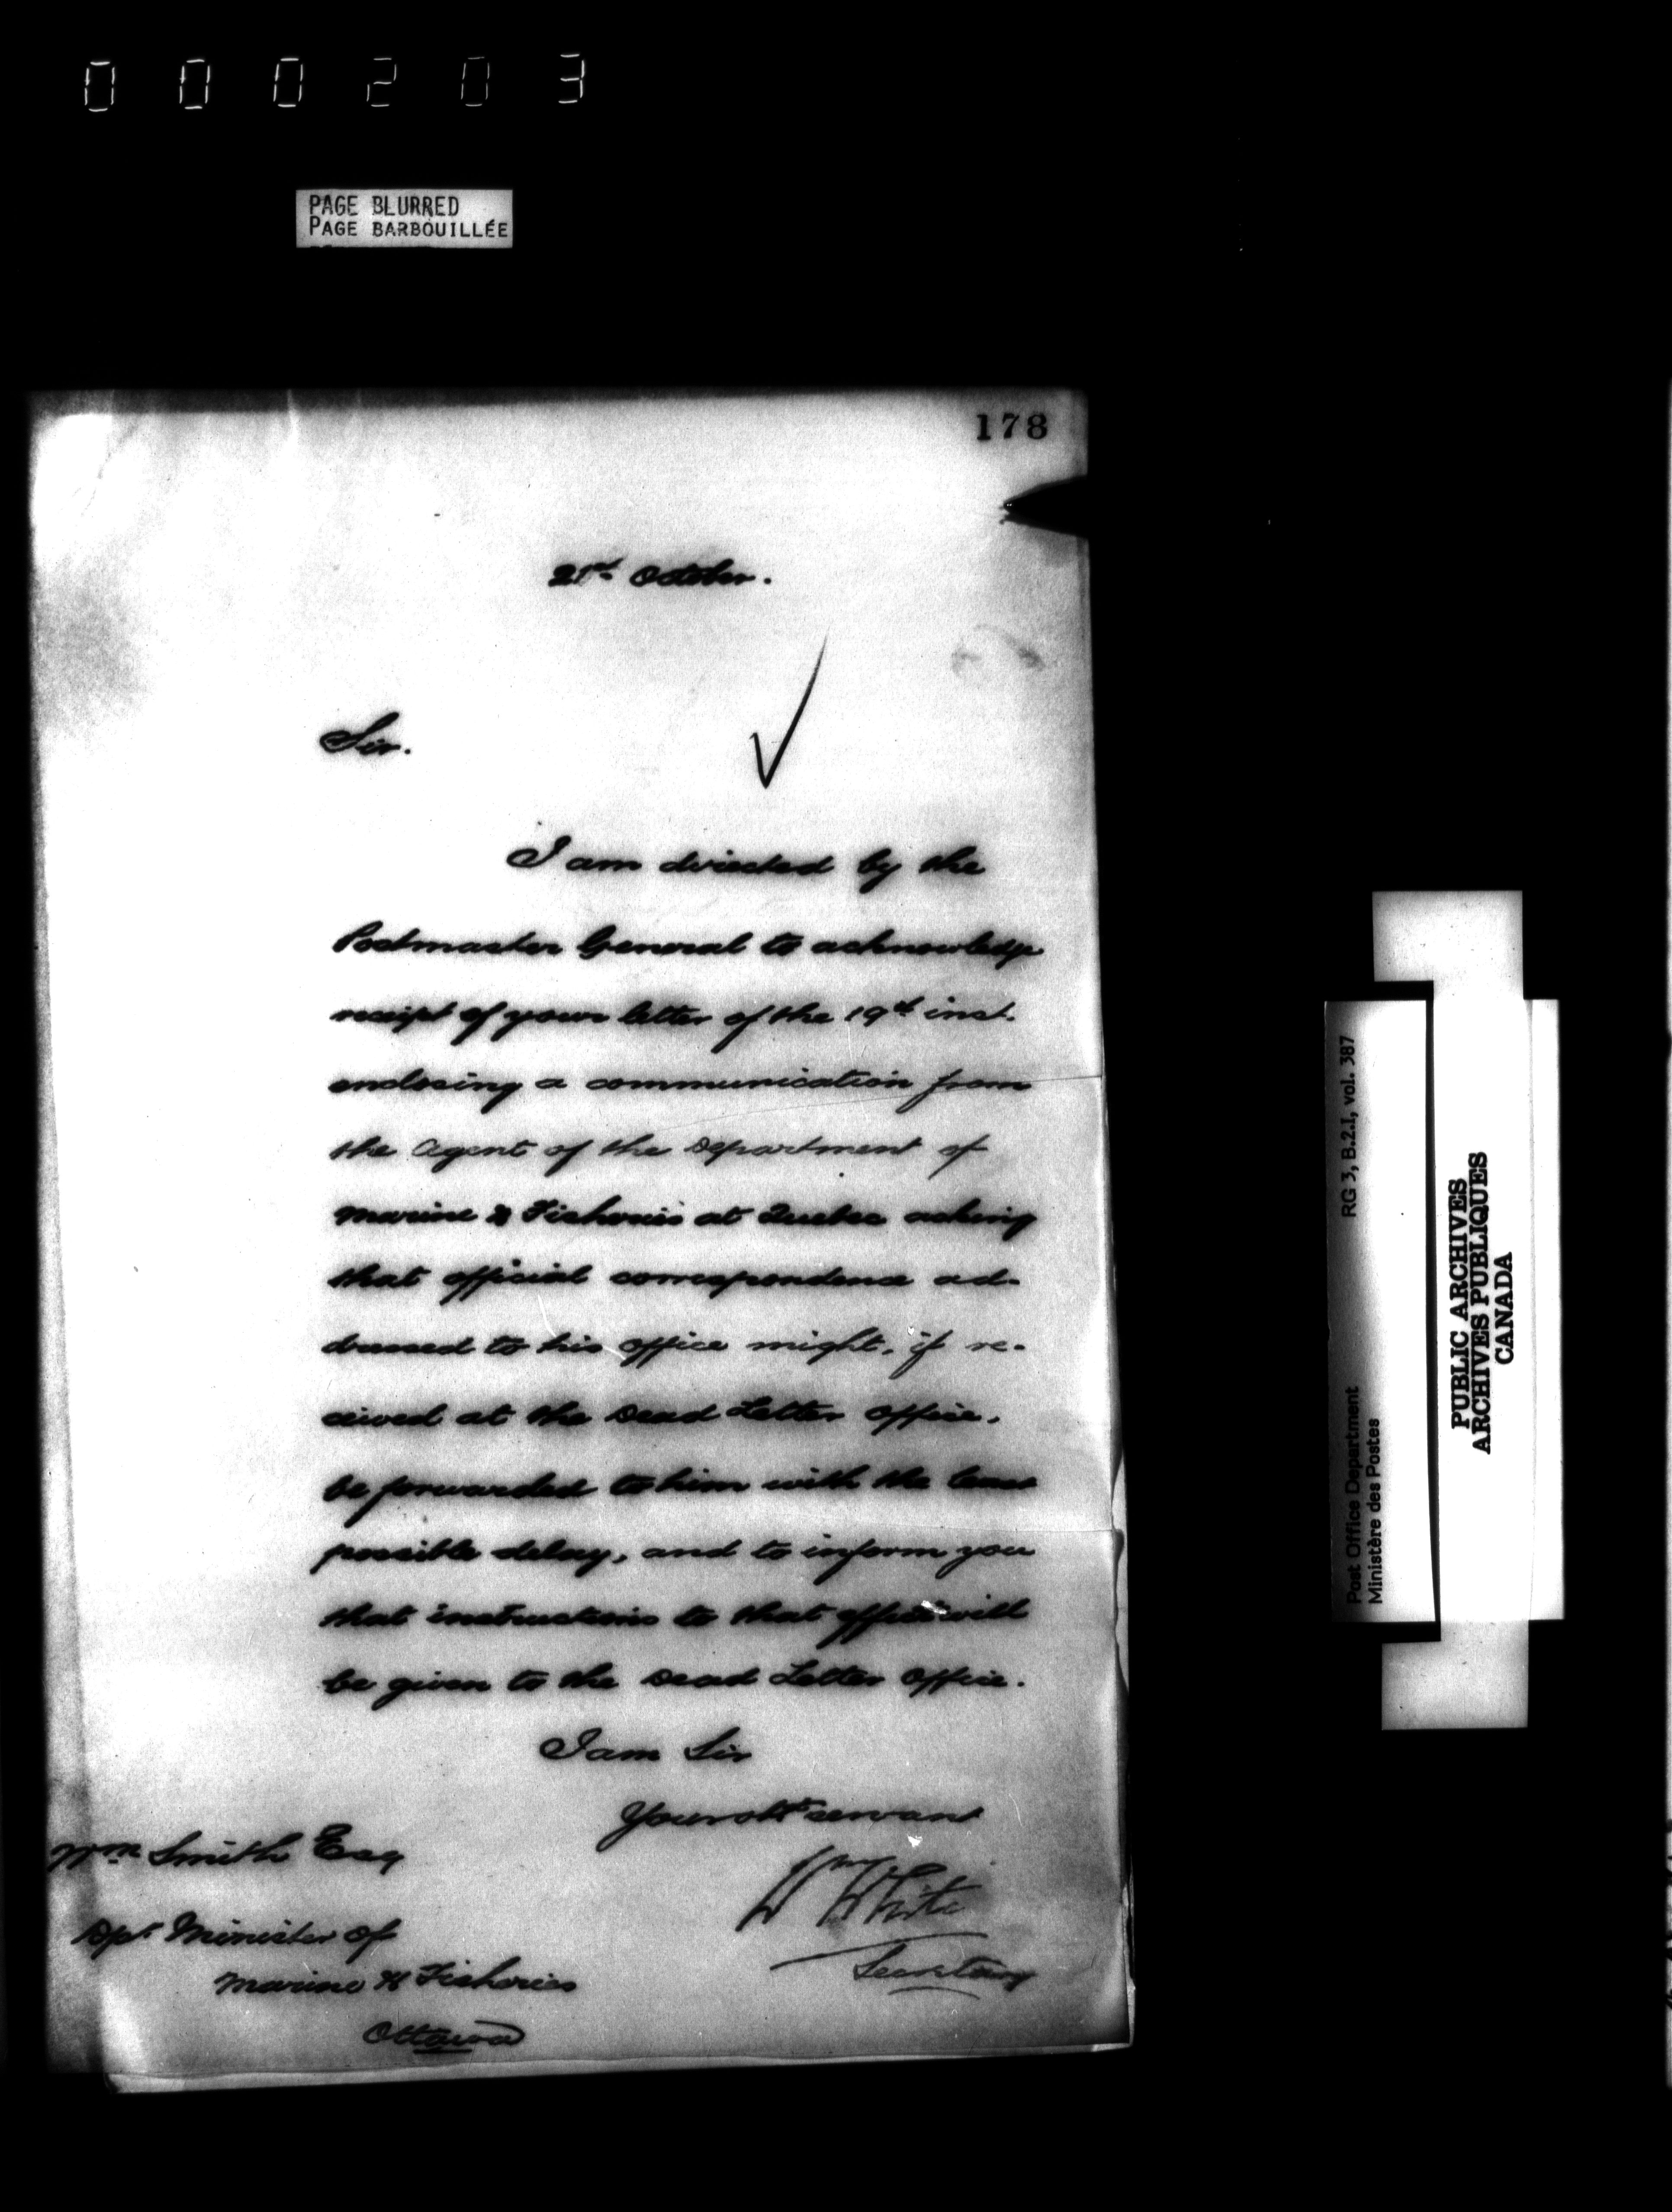 0 0 0 2 0 3
PAGE BLURRED
PAGE BARBOUILLÉE
178
21st October.
Sir.
I am directed by the
Postmaster General to acknowledge
receipt of your letter of the 19th inst.
enclosing a communication from
the Agent of the Department of
Marine & Fisheries at Quebec asking
that official correspondence ad-
dressed to his office might, if re-
ceived at the Dead Letter Office,
be forwarded to him with the least
possible delay, and to inform you
that instructions to that effect will
be given to the Dead Letter Office.
I am Sir
Your obt servant
Wm White
Secretary
Wm Smith Esq
Dpt Minister of
Marine & Fisheries
Ottawa
RG 3, B.2.I, vol. 387
Post Office Department
Ministère des Postes
PUBLIC ARCHIVES
ARCHIVES PUBLIQUES
CANADA